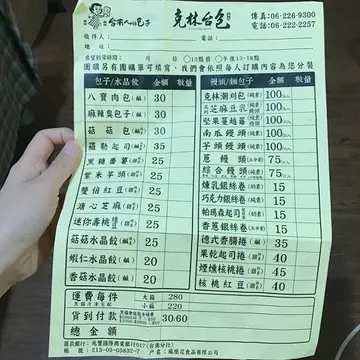 台南人的包子 克林台包 傳真:06-226-9300
電話:06-222-2257
收件人: 電話:
地址:
希望到貨時間: 月 日 □13點前 □午後13-18點
團購另有團購單可填寫,我們會依照每人訂購內容為您分裝
包子/水晶餃 金額 數量
八寶肉包(鹹) 30
麻辣臭包子(鹹) 30
菇菇包(鹹) 30
羅勒起司(鹹) 35
黑糖番薯(甜) 25
紫米芋頭(甜) 25
雙倍紅豆(甜) 25
溏心芝麻(甜) 25
迷你壽桃 25
菇菇水晶餃(鹹) 25
蝦仁水晶餃(鹹) 20
香菇水晶餃(鹹) 20
運費每件 大箱 280
小箱 220
貨到付款 30/60
總金額
饅頭/麵包子 金額 數量
克林潮刈包 100
芝麻豆乳 100
堅果蔓越莓 100
南瓜饅頭 100
芋頭饅頭 100
蔥饅頭 75
全麥饅頭 75
煉乳銀絲卷 15
巧克力銀絲卷 15
帕瑪森起司 15
雙倍紅豆 15
德式香腸捲 35
果乾起司捲 40
煙燻核桃捲 45
核桃紅豆 40
匯款銀行:兆豐國際商業銀行017(台南分行)
帳號:213-09-05832-7 戶名:鳳凰花食品有限公司